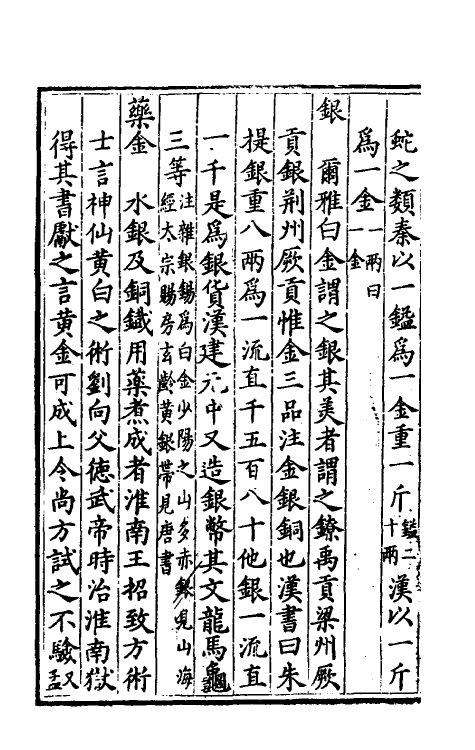 蛇之類秦以一鎰爲一金重一斤鎰二十兩漢以一斤
爲一金一兩曰一金
銀　爾雅白金謂之銀其美者謂之鐐禹貢梁州厥
貢銀荆州厥貢惟金三品注金銀銅也漢書曰朱
提銀重八兩爲一流直千五百八十他銀一流直
一千是爲銀貨漢建元中又造銀幣其文龍馬龜
三等注雜銀錫爲白金少陽之山多赤銀見山海經太宗賜房玄齡黄銀帶見唐書
藥金　水銀及銅鐡用藥煮成者淮南王招致方術
士言神仙黄白之術劉向父德武帝時冶淮南獄
得其書獻之言黄金可成上令尚方試之不驗又孟